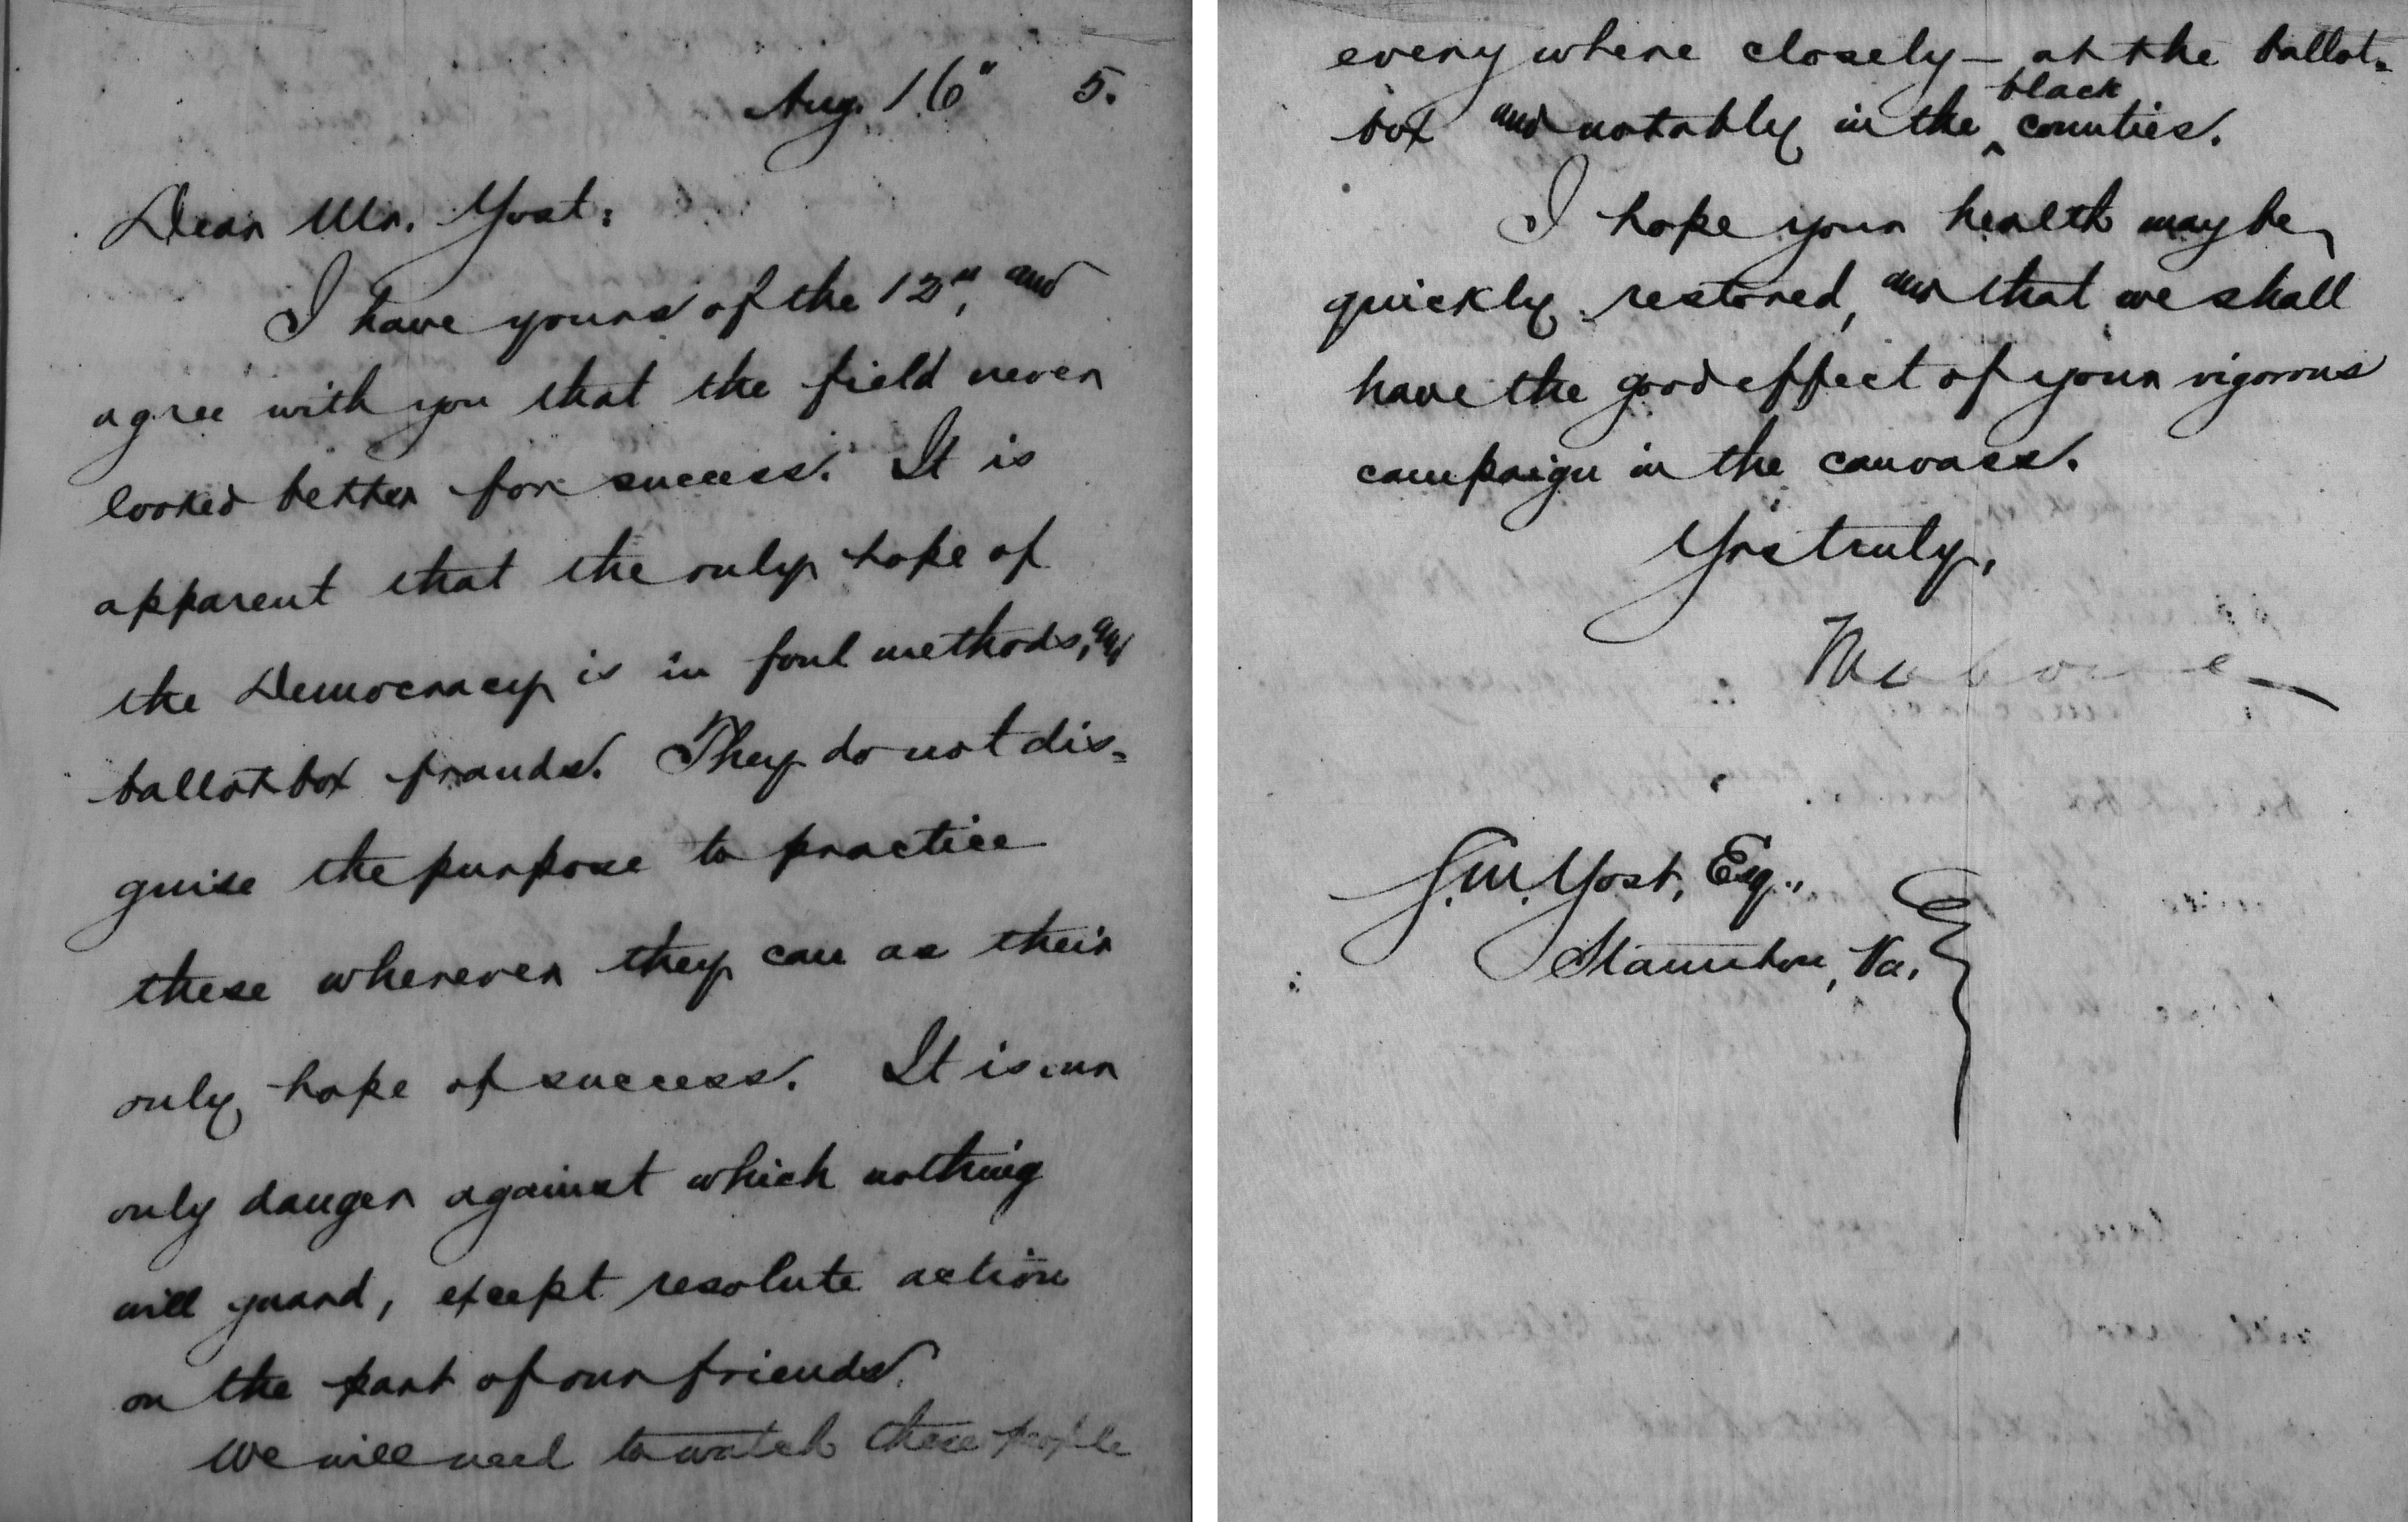 Aug. 16" 5.
Dear Mr. Yost:
I have yours of the 12", and
agree with you that the field never
looked better for success. It is
apparent that the only hope of
the Democracy is in foul methods, and
ballot box frauds. They do not dis=
guise the purpose to practice
these wherever they can as their
only hope of success. It is our
only danger against which nothing
will guard, except resolute action
on the part of our friends.
We will need to watch these people
everywhere closely — at the ballot=
box and notably in the ^black counties.
I hope your health may be
quickly restored, and that we shall
have the good effect of your vigorous
campaign in the canvass.
Yrs truly,
Mahone
S.M. Yost, Esq.,
Staunton, Va.